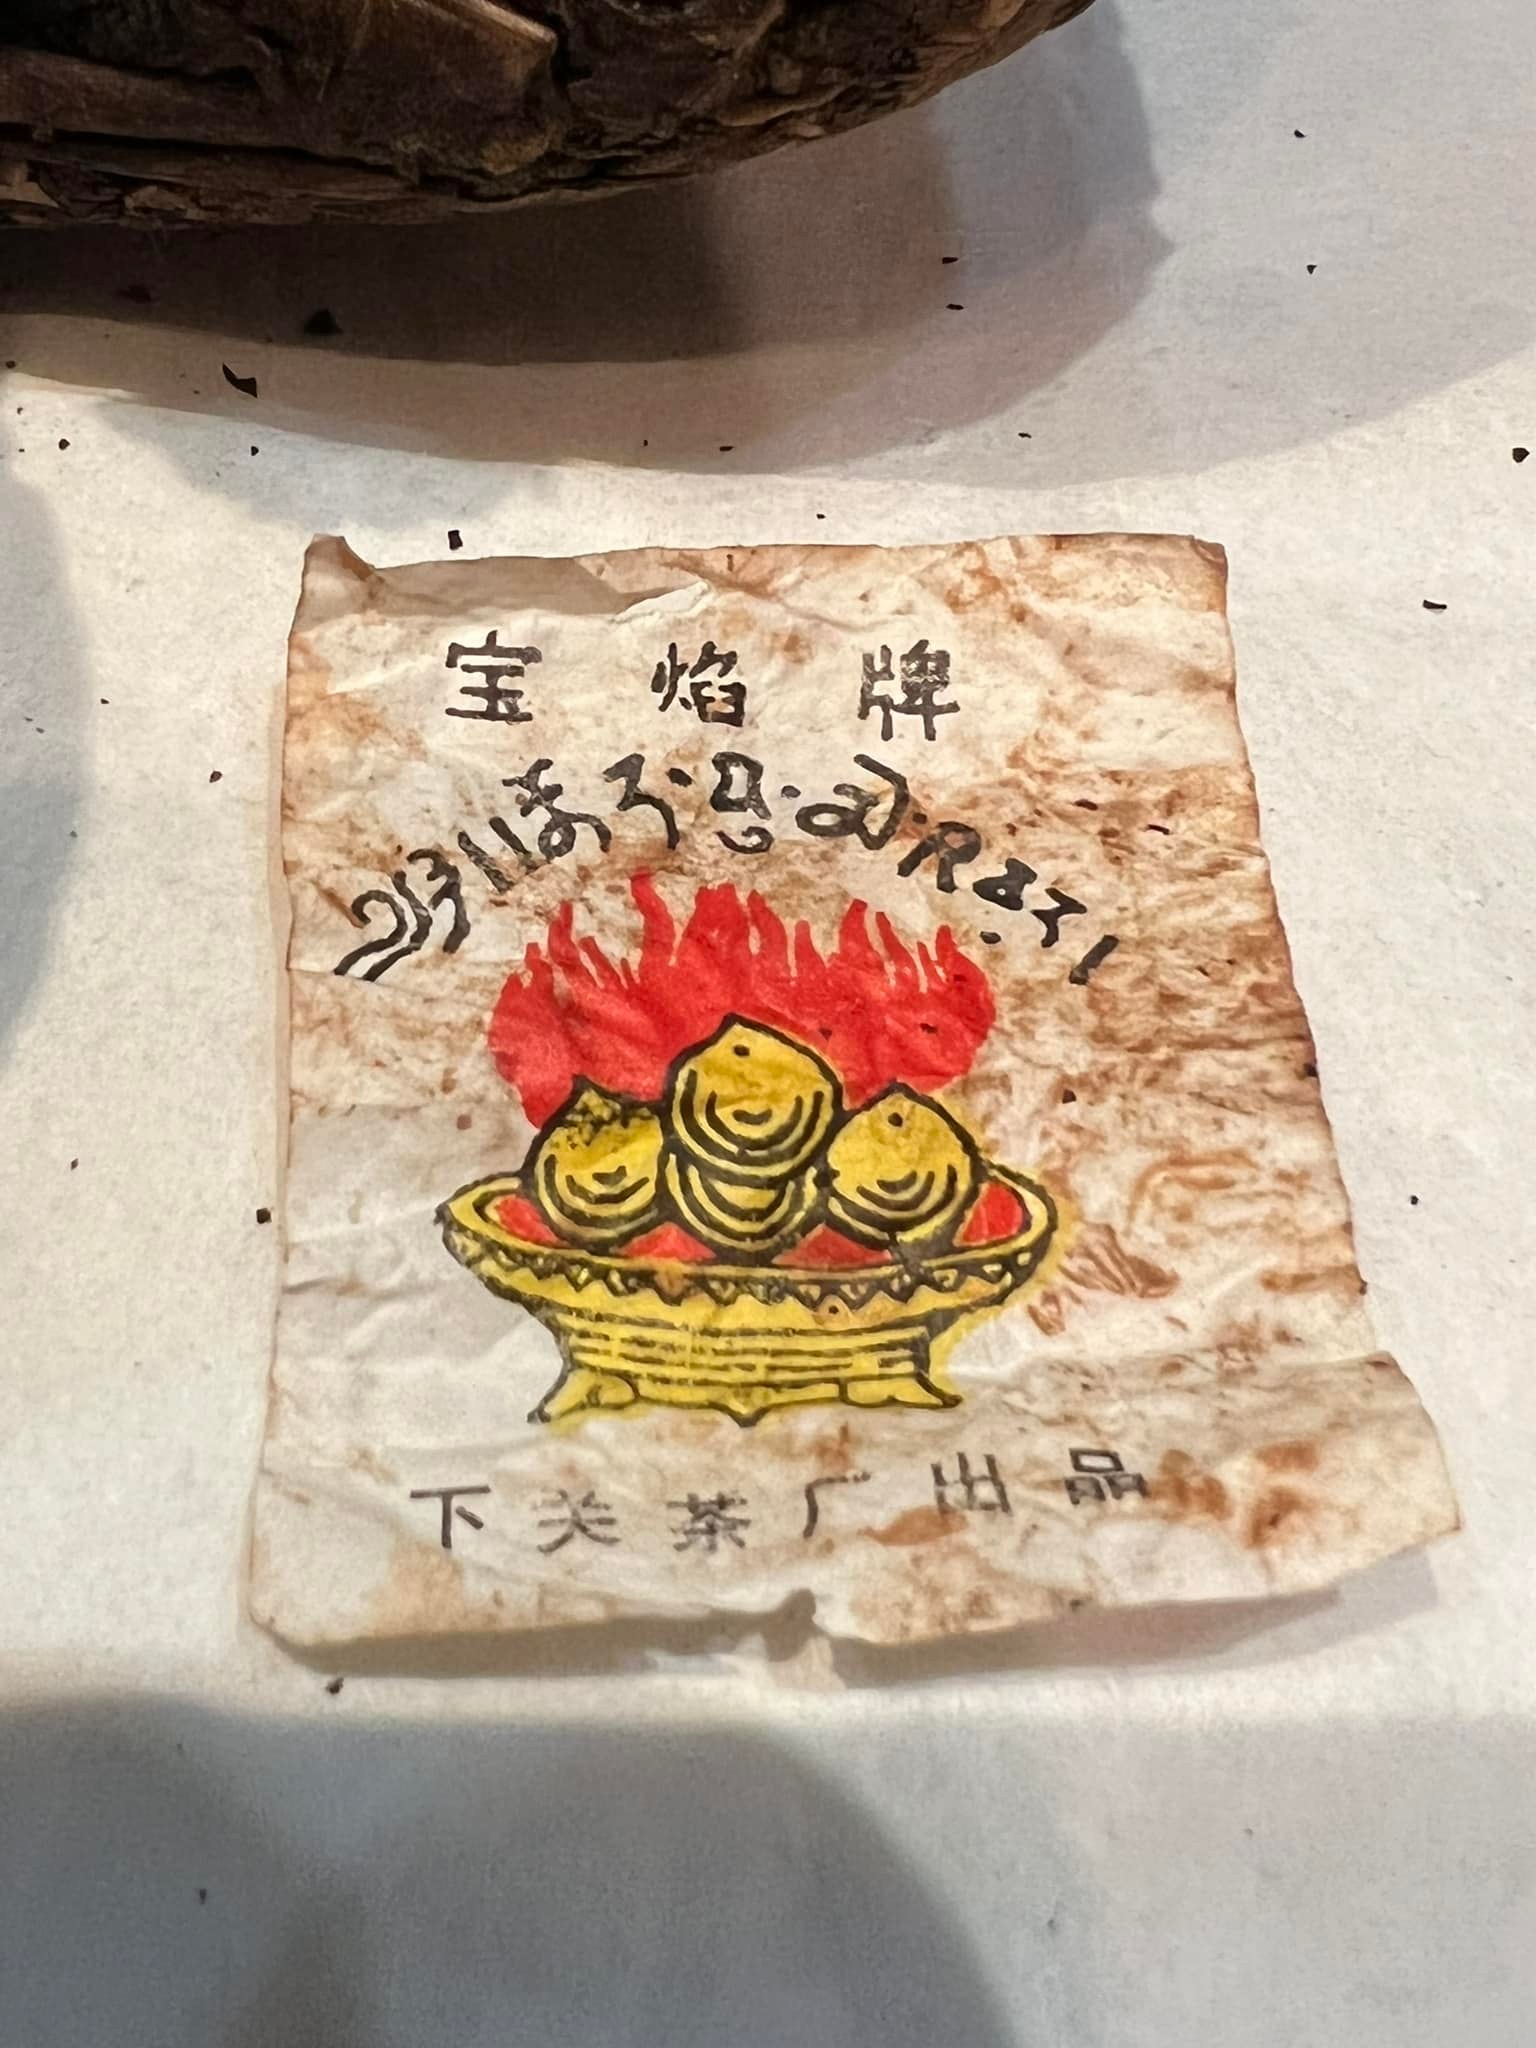 宝焰牌
༄༅།།ནོར་བུ་མེ་འབར།
下关茶厂出品